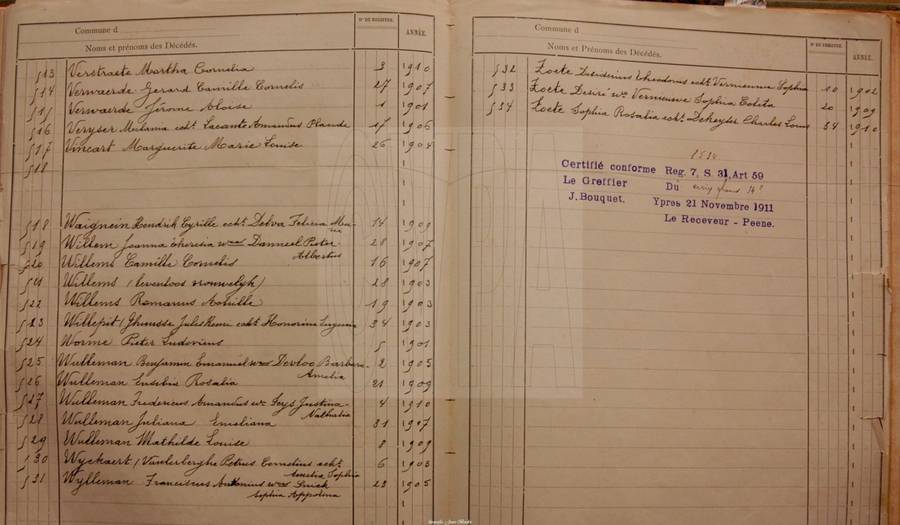 Commune d
Noms et prénoms des Décédés.
Nº DE REGISTRE.
ANNÉE.
513 Verstraete Martha Cornelia 3 1910
514 Vervaerde Gerard Camille Cornelis 27 1907
515 Vervaerde Jérome Aloise 1 1901
516 Veryser Melania echt. Lacante Amandus 17 1906
517 Vincart Marguerite Marie Louise 26 1904
518
518 Waignein Hendrik Cyrille echt. Delva Felicia 14 1909
519 Willem Joanna Theresia wwe Danneel Pieter 28 1907
Albertus
520 Willems Camille Cornelis 16 1907
521 Willems (levenloos vrouwelijk) 28 1903
522 Willems Romanus Achille 19 1903
523 Jules Henri echt. Honorine Eugenie 34 1903
524 Worme Pieter Ludovicus 5 1901
525 Wulleman Benjamin Emanuel Barbara 2 1905
Amelia
526 Wulleman Eusebie Rosalia 21 1909
527 Wulleman Fredericus Amandus wr. Feys Justina 4 1910
Nathalia
528 Wulleman Juliana Emeliana 31 1907
529 Wulleman Mathilde Louise 8 1909
530 Wyckaert / Vanderberghe Petrus Cornelius echt. 6 1903
Amelia Sophia
531 Wylleman Franciscus Antonius 23 1905
Sophia Appolona
Commune d
Noms et Prénoms des Décédés.
Nº DE REGISTRE.
ANNÉE.
532 Zoete Desiderius Theodorus echt. Vermeeuwe Sophia 10 1902
533 Zoete Désiré wr. Vermeeuwe Sophia Coleta 20 1909
534 Zoete Sophia Rosalia echt. Dekeyser Charles Louis 34 1910
Certifié conforme
Le Greffier
J. Bouquet.
Reg. 7, S. 31, Art 59
Du
Ypres 21 Novembre 1911
Le Receveur - Peene.